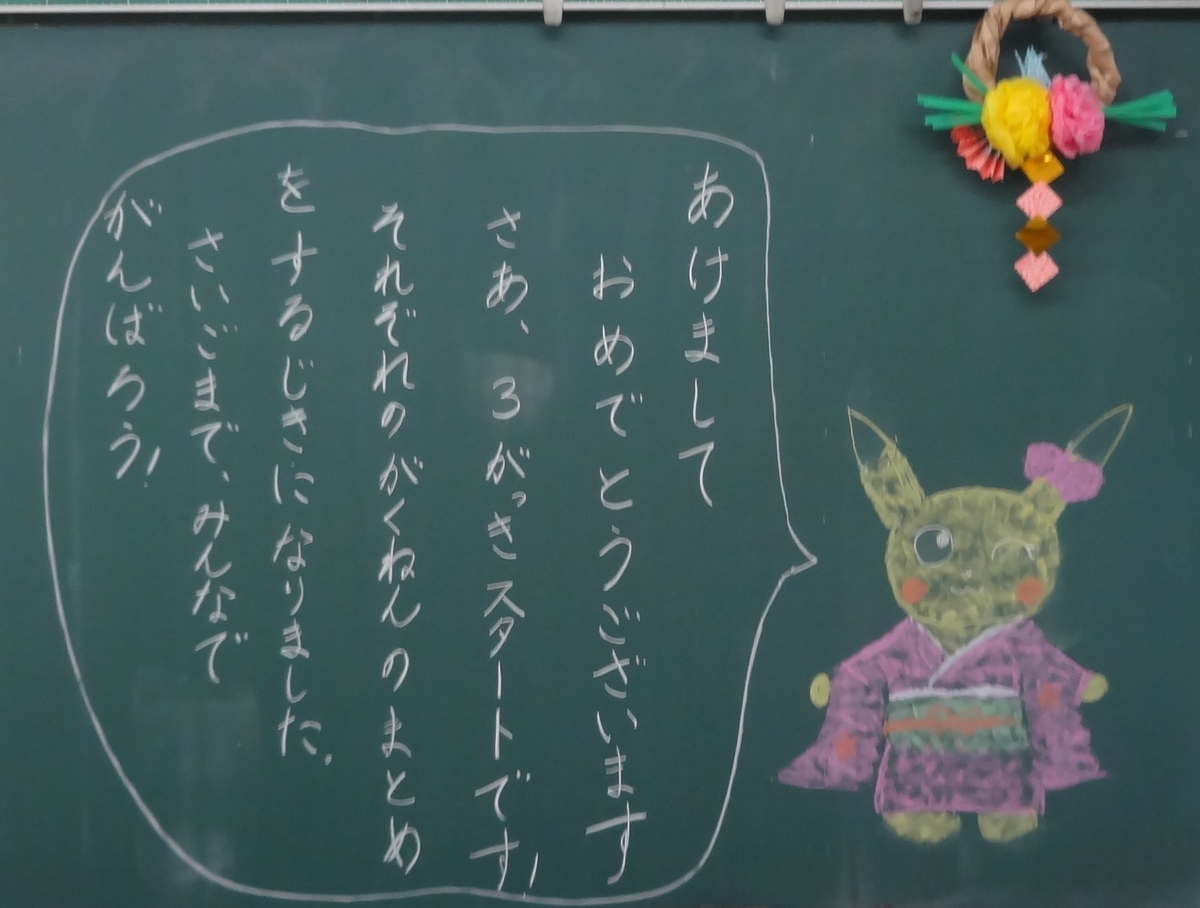 あけまして
おめでとうございます
さあ、3がっきスタートです!
それぞれのがくねんのまとめ
をするじきになりました。
さいごまで、みんなで
がんばろう!